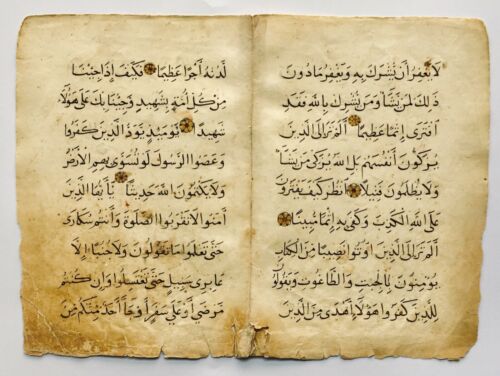 لَا يَغْفِرُ أَنْ يُشْرَكَ بِهِ وَيَغْفِرُ مَا دُونَ
ذَلِكَ لِمَنْ يَشَآءُ وَمَنْ يُشْرِكْ بِاللَّهِ فَقَدِ
افْتَرَى إِثْمًا عَظِيمًا أَلَمْ تَرَ إِلَى الَّذِينَ
يُزَكُّونَ أَنْفُسَهُمْ بَلِ اللَّهُ يُزَكِّي مَنْ يَشَآءُ
وَلَا يُظْلَمُونَ فَتِيلًا انْظُرْ كَيْفَ يَفْتَرُونَ
عَلَى اللَّهِ الْكَذِبَ وَكَفَى بِهِ إِثْمًا مُبِينًا
أَلَمْ تَرَ إِلَى الَّذِينَ أُوتُوا نَصِيبًا مِنَ الْكِتَابِ
يُؤْمِنُونَ بِالْجِبْتِ وَالطَّاغُوتِ وَيَقُولُونَ
لِلَّذِينَ كَفَرُوا هَؤُلَآءِ أَهْدَى مِنَ الَّذِينَ
لَدُنْهُ أَجْرًا عَظِيمًا فَكَيْفَ إِذَا جِئْنَا
مِنْ كُلِّ أُمَّةٍ بِشَهِيدٍ وَجِئْنَا بِكَ عَلَى هَؤُلَآءِ
شَهِيدًا يَوْمَئِذٍ يَوَدُّ الَّذِينَ كَفَرُوا
وَعَصَوُا الرَّسُولَ لَوْ تُسَوَّى بِهِمُ الْأَرْضُ
وَلَا يَكْتُمُونَ اللَّهَ حَدِيثًا يَا أَيُّهَا الَّذِينَ
آمَنُوا لَا تَقْرَبُوا الصَّلَوةَ وَأَنْتُمْ سُكَارَى
حَتَّى تَعْلَمُوا مَا تَقُولُونَ وَلَا جُنُبًا إِلَّا
عَابِرِي سَبِيلٍ حَتَّى تَغْتَسِلُوا وَإِنْ كُنْتُمْ
مَرْضَى أَوْ عَلَى سَفَرٍ أَوْ جَآءَ أَحَدٌ مِنْكُمْ مِنَ